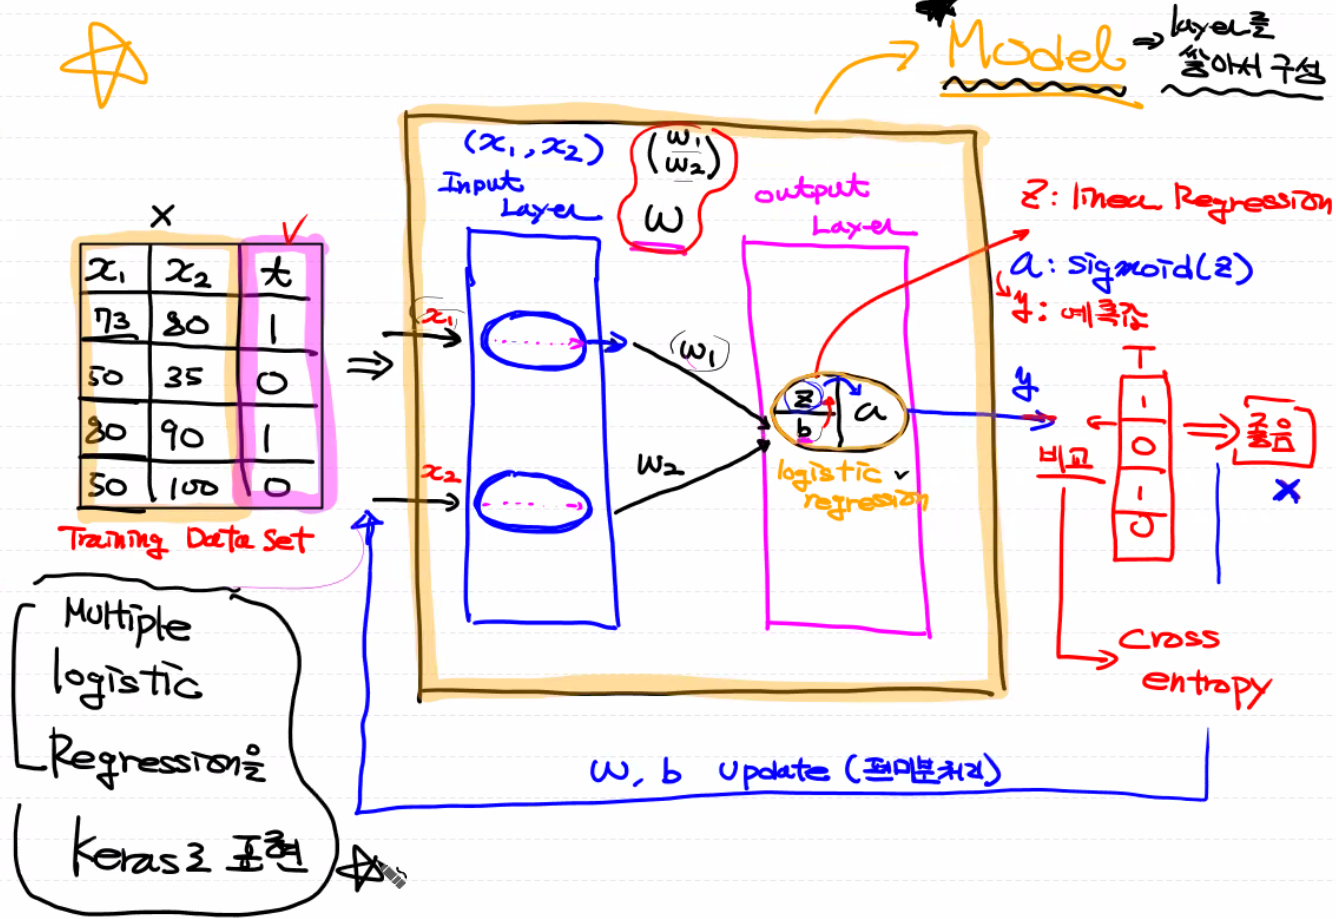 Model ⇒ layer를
쌓아서 구성
(x₁, x₂)
(w₁
w₂)
W
Input
Layer
output
Layer
Z: linear Regression
a: sigmoid(z)
y: 예측값
X
x₁ x₂ t
73 80 1
50 35 0
80 90 1
50 100 0
Training Data Set
x₁
x₂
w₁
w₂
z
b
a
logistic
regression
y
비교
T
1
0
1
0
좋음
X
Cross
entropy
W, b update (편미분처리)
Multiple
logistic
Regression을
Keras로 표현